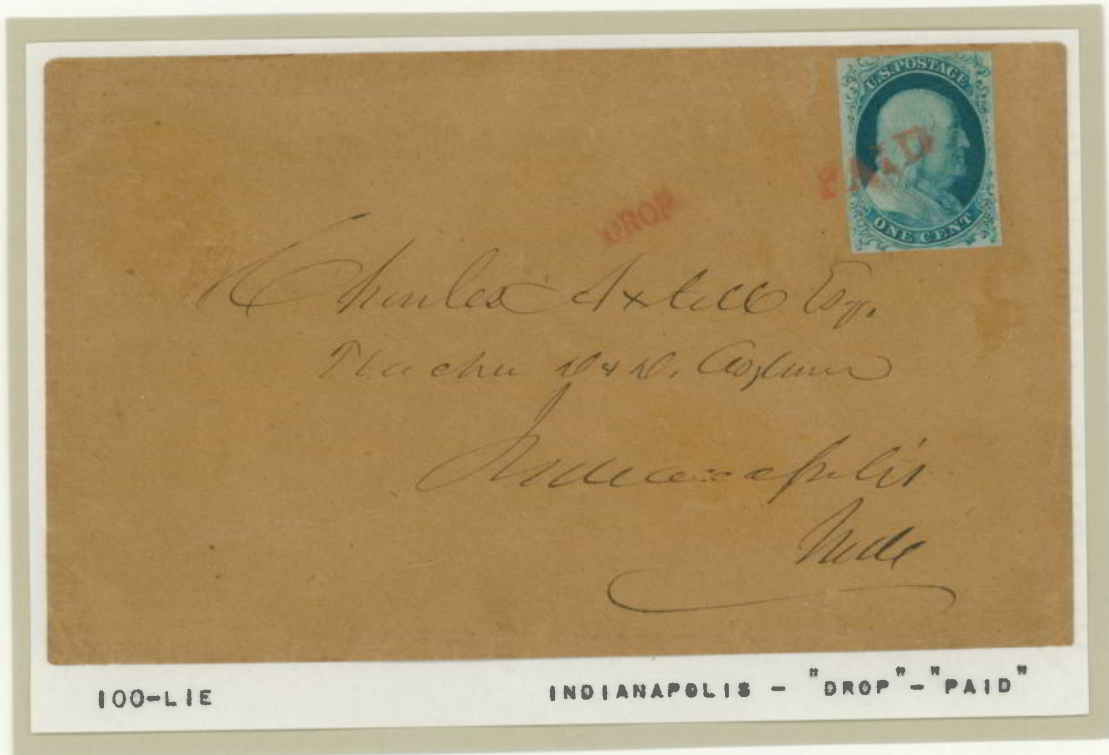 U.S. POSTAGE
PAID
ONE CENT
DROP
Charles Axtell Esq.
Teacher D & D. Asylum
Indianapolis
Inde
100-L1E INDIANAPOLIS - "DROP"-"PAID"